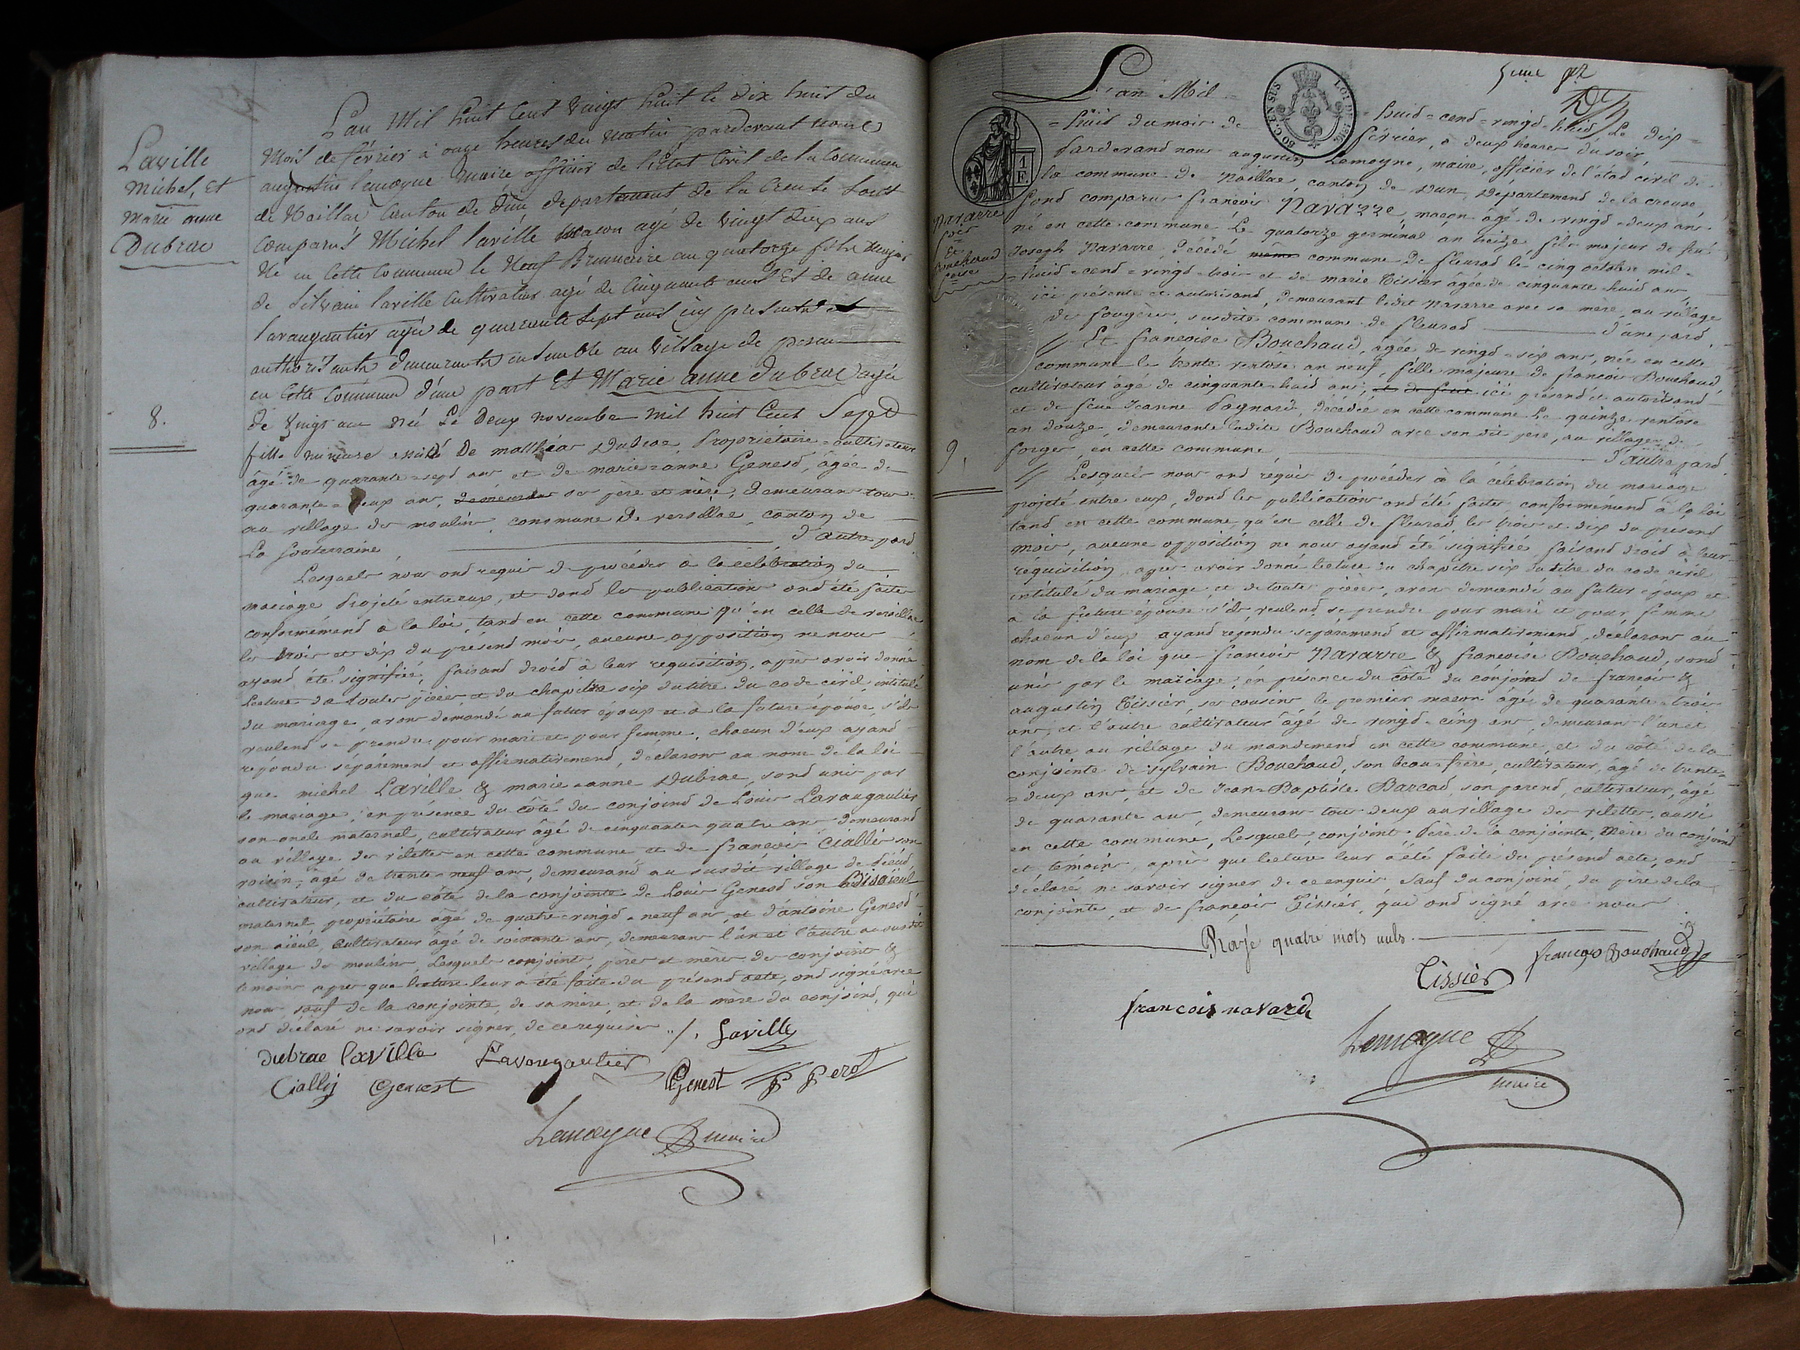 Laville
Michel, Et
Marie anne
Dubrac
8.
L'an Mil huit Cent Vingt huit le dix huit du
Mois de février à onze heures du Matin pardevant nous
augustin lemoyne Maire officier de l'Etat Civil de la Commune
de Noillac Canton de Dun departement de la Creuse Sont
Comparus Michel laville Macon agé de Vingt deux ans
Né en Cette Commune le Neuf Brumaire an quatorze fils Majeur
de Silvain laville Cultivateur agé de Cinquante ans Et de anne
laraugautier agée de quarante Sept ans icy presents et
authorisants demeurants ensemble au Village de
en Cette Commune d'une part Et Marie anne Dubrac agée
de Vingt ans Née Le Deux novembre Mil huit Cent Sept
fille mineure de mathéas Dubrac, Propriétaire-cultivateur
âgé de quarante-sept ans et de marie-anne Genest, âgée de
quarante-deux ans, ses père et mère, demeurans tous
au village de moulin, commune de versillac, canton de
La Souterraine, d'autre part.
Lesquels nous ont requis de procéder à la célébration du
mariage projeté entre eux, et dont les publications ont été faites
conformément à la loi, tant en cette commune qu'en celle de versillac
les trois et dix du présent mois, aucune opposition ne nous
ayant été signifiée, faisant droit à leur requisition, après avoir donné
Lecture de toutes pièces et du chapitre six du titre du code civil, intitulé
du mariage, avons demandé au futur époux et à la future épouse, s'ils
veulent se prendre pour mari et pour femme, chacun d'eux ayant
répondu séparément et affirmativement, déclarons au nom de la loi
que michel Laville & marie-anne Dubrac, sont unis par
le mariage; en présence du côté du conjoint de Louis Laraugautier
son oncle maternel, cultivateur âgé de cinquante-quatre ans demeurant
au village des vilettes en cette commune et de francois Ciallis son
voisin, âgé de trente-neuf ans, demeurant au susdit village de
cultivateur, et du côté de la conjointe de Louis Genest son bisaïeul
maternel, propriétaire âgé de quatre-vingt-neuf ans, et d'antoine Genest
son aïeul cultivateur âgé de soixante ans, demeurans l'un et l'autre au susdit
village de moulin, Lesquels conjoints, pères et mères des conjoints &
témoins après que lecture leur a été faite du présent acte, ont signé avec
nous, sauf de la conjointe, de sa mère, et de la mère du conjoint, qui
ont déclaré ne savoir signer, de ce requises ./. Laville
dubrac laville Lavaugautier
Ciallis Genest Genest
Lemoyne maire
Navarre
&
Bouchaud
9.
L'an Mil-
huit-cent-vingt-huit, Le dix-
-huit du mois de février, à deux heures du soir,
Pardevant nous augustin Lemoyne, maire, officier de l'état civil de
la commune de Noillac, canton de Dun, Département de la creuse
sont comparus francois Navarre, maçon âgé de vingt-deux ans
né en cette commune Le quatorze germinal an treize, fils majeur de feu
Joseph Navarre, décédé commune de fleurat le cinq octobre mil-
huit-cent-vingt-trois et de marie Tissier âgée de cinquante huit ans
ici présente et autorisant, demeurant ledit Navarre avec sa mère, au village
de fougères, susdite commune de fleurat d'une part.
Et francoise Bouchaud, âgée de vingt-six ans, née en cette
commune le trente ventôse an neuf, fille majeure de francois Bouchaud
cultivateur âgé de cinquante huit ans, ici présent et autorisant
et de feue Jeanne Pagnard, décédée en cette commune Le quinze ventôse
an douze, demeurante ladite Bouchaud avec son dit père, au village de
forges, en cette commune d'autre part.
Lesquels nous ont requis de procéder à la célébration du mariage
projeté entre eux, dont les publications ont été faites, conformément à la loi
tant en cette commune qu'en celle de fleurat, les trois et dix du présent
mois, aucune opposition ne nous ayant été signifiée, faisant droit à leur
requisition, après avoir donné lecture du chapitre six du titre du code civil
intitulé du mariage, et de toutes pièces, avons demandé au futur époux et
à la future épouse s'ils veulent se prendre pour mari et pour femme
chacun d'eux ayant répondu séparément et affirmativement, déclarons au
nom de la loi que francois Navarre & francoise Bouchaud, sont
unis par le mariage; en présence du côté du conjoint de francois &
augustin Tissier, ses cousins, le premier macon âgé de quarante-trois
ans, et l'autre cultivateur âgé de vingt-cinq ans, demeurans l'un et
l'autre au village du mandement en cette commune, et du côté de la
conjointe de sylvain Bouchaud, son beau-frère, cultivateur, âgé de trente-
-deux ans, et de Jean-Baptiste Barcat, son parent, cultivateur, âgé
de quarante ans demeurans tous deux au village des vilettes, aussi
en cette commune, Lesquels, conjoint. Père de la conjointe, Mère du conjoint
et, témoins, après que lecture leur a été faite du présent acte, ont
déclaré ne savoir signer de ce enquis, Sauf du conjoint, du père de la
conjointe, et de françois Tissier, qui ont signé avec nous
Rayé quatre mots nuls.
françois Bouchaud
Tissier
francois navard
Lemoyne
maire